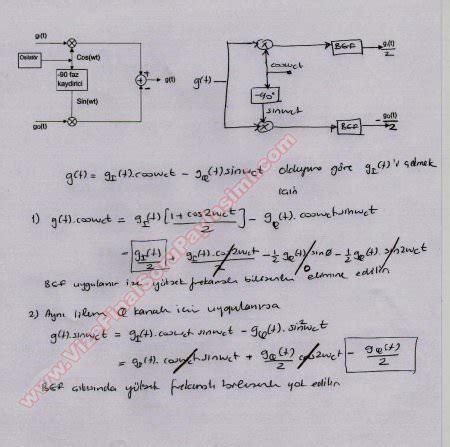 gi(t)
Osilatör
Cos(wt)
-90 faz
kaydirici
+
-
g(t)
Sin(wt)
gq(t)
g(t)
coswct
-90°
sinwct
BGF
gI(t)/2
BGF
- gQ(t)/2
g(t) = gI(t).coswct - gQ(t)sinwct olduğuna göre gI(t)'yi çekmek
için
1) g(t).coswct = gI(t)[1+cos2wct / 2] - gQ(t).coswct sinwct
= gI(t)/2 + gI(t).cos2wct/2 - 1/2 gQ(t) sin0 - 1/2 gQ(t).sin2wct
0
BGF uygulanır ise yüksek frekanslı bileşenler elimine edilir
2) Aynı işlem Q kanalı için uygulanırsa
g(t).sinwct = gI(t).coswct sinwct - gQ(t).sin²wct
= gI(t).coswct sinwct + gQ(t)/2 cos2wct - gQ(t)/2
BGF çıkışında yüksek frekanslı bileşenler yok edilir
www.VizeFinalSoruPaylasimi.com